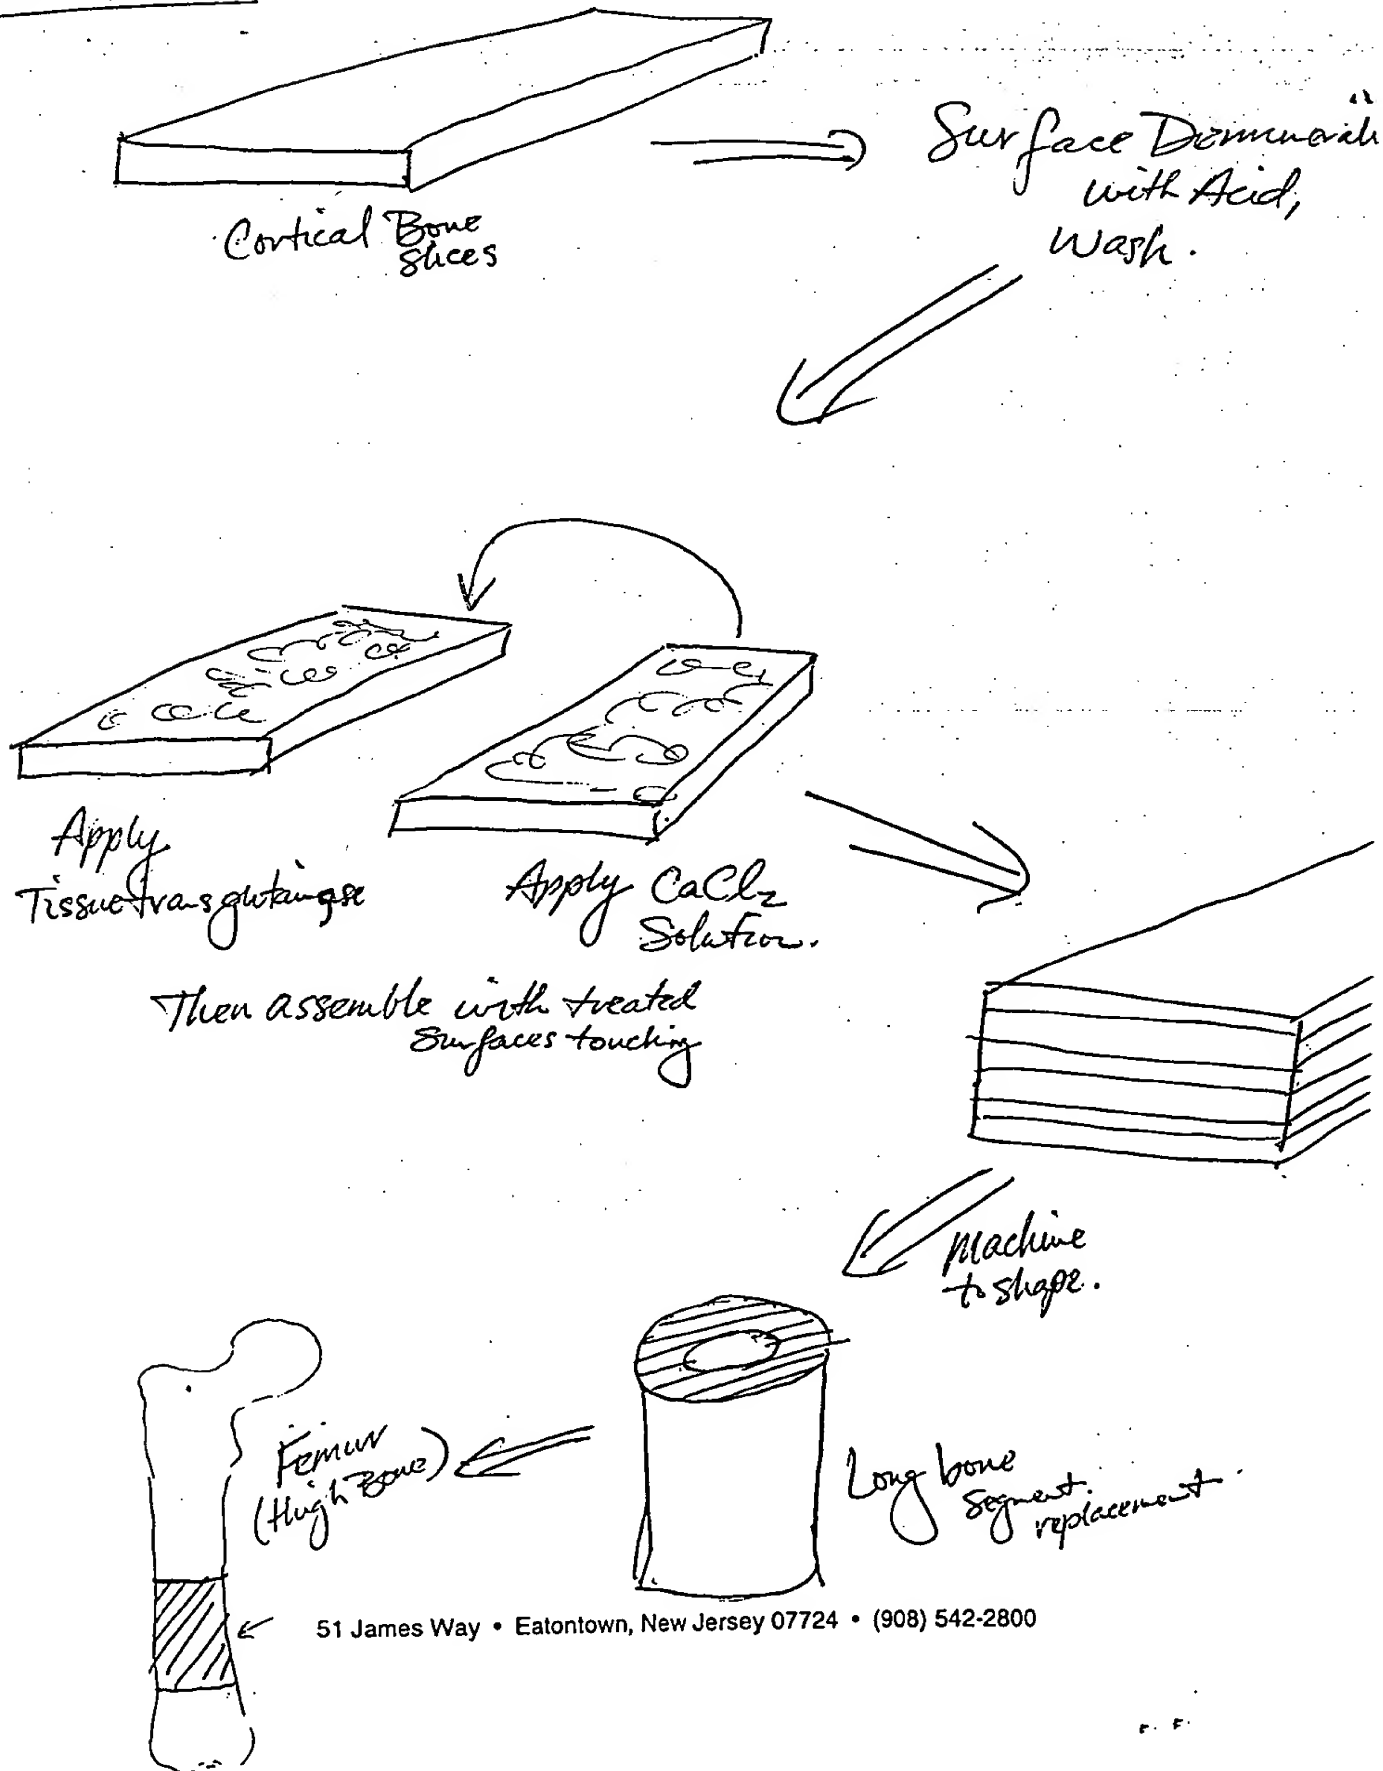 Cortical Bone
slices
Surface
with Acid,
Wash.
Apply
Tissue transglutaminase
Apply CaCl2
Solution.
Then assemble with treated
Surfaces touching
Machine
to shape.
Femur
(thigh Bone)
Long bone
segment
replacement
51 James Way • Eatontown, New Jersey 07724 • (908) 542-2800